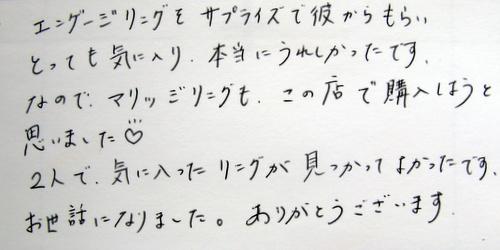 エンゲージリングをサプライズで彼からもらい
とっても気に入り、本当にうれしかったです。
なので、マリッジリングも、この店で購入しようと
思いました♡
2人で、気に入ったリングが見つかってよかったです。
お世話になりました。ありがとうございます.